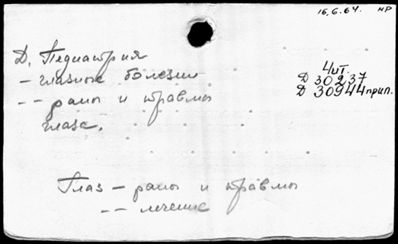 16.6.64. НР
Д. Педиатрия
- глазные болезни
-- раны и травмы
глаза.
Чит.
Д 30237
Д 30944 прип.
Глаз - раны и травмы
-- лечение